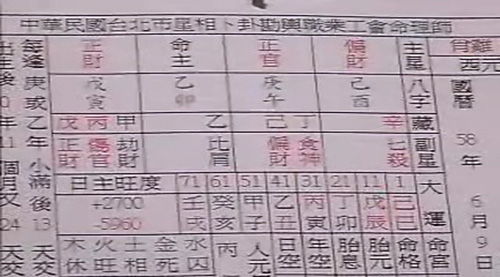 中華民國台北市星相卜卦勘輿職業工會命理師
出生後 每逢 正財 命主 正官 偏財 主星 肖雞
0 庚或 戊 乙 庚 己 八字 國曆 西元
寅 卯 午 酉
年 乙 戊丙甲 乙 己丁 辛 藏 58
11年 正財 傷官 劫財 比肩 偏財 食神 七殺 副星 年
個月又 小滿後 日主旺度 71 61 51 41 31 21 11 1 大運
+2700 壬 癸 甲 乙 丙 丁 戊 己 6月
24 13 -5960 戌 亥 子 丑 寅 卯 辰 巳 9日
天交 天交 木休 火旺 土相 金死 水囚 丙 人元 日空 年空 胎息 胎元 命格 命宮